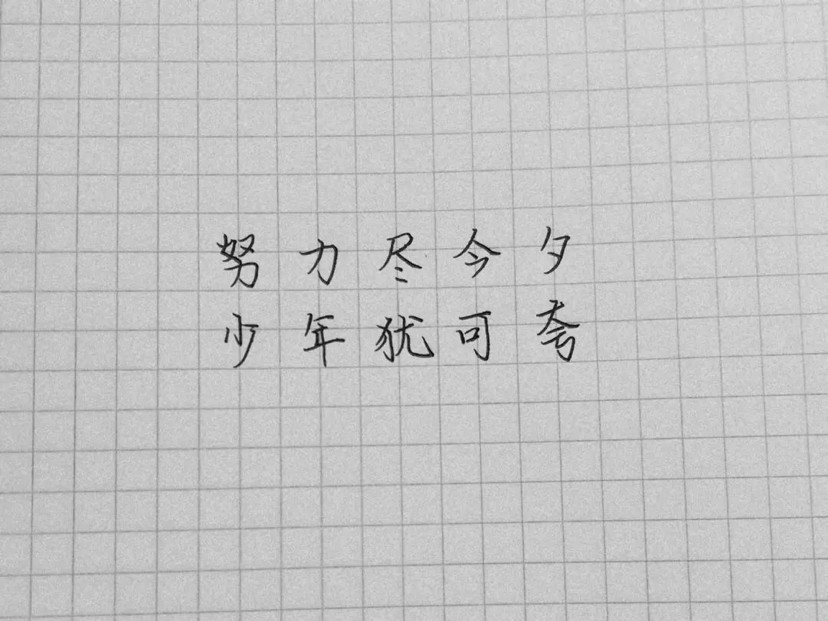 努力尽今夕
少年犹可夸